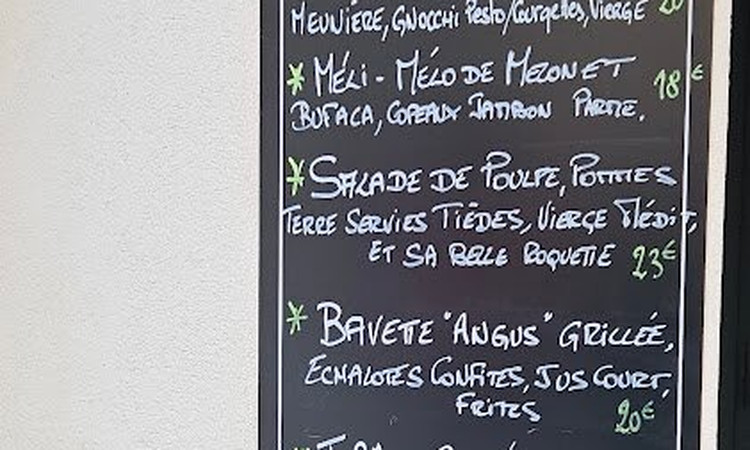 MEUNIÈRE, GNOCCHI Pesto/Courgettes, VIERGE 20
* MÉLI - MÉLO DE MELON ET 18 €
BUFALA, COPEAUX JAMBON PARME.
* SALADE DE POULPE, POMMES
TERRE SERVIES TIÈDES, VIERGE MÉDIT,
ET SA BELLE ROQUETTE 23€
* BAVETTE "ANGUS" GRILLÉE,
ECHALOTES CONFITES, JUS COURT,
FRITES 20€